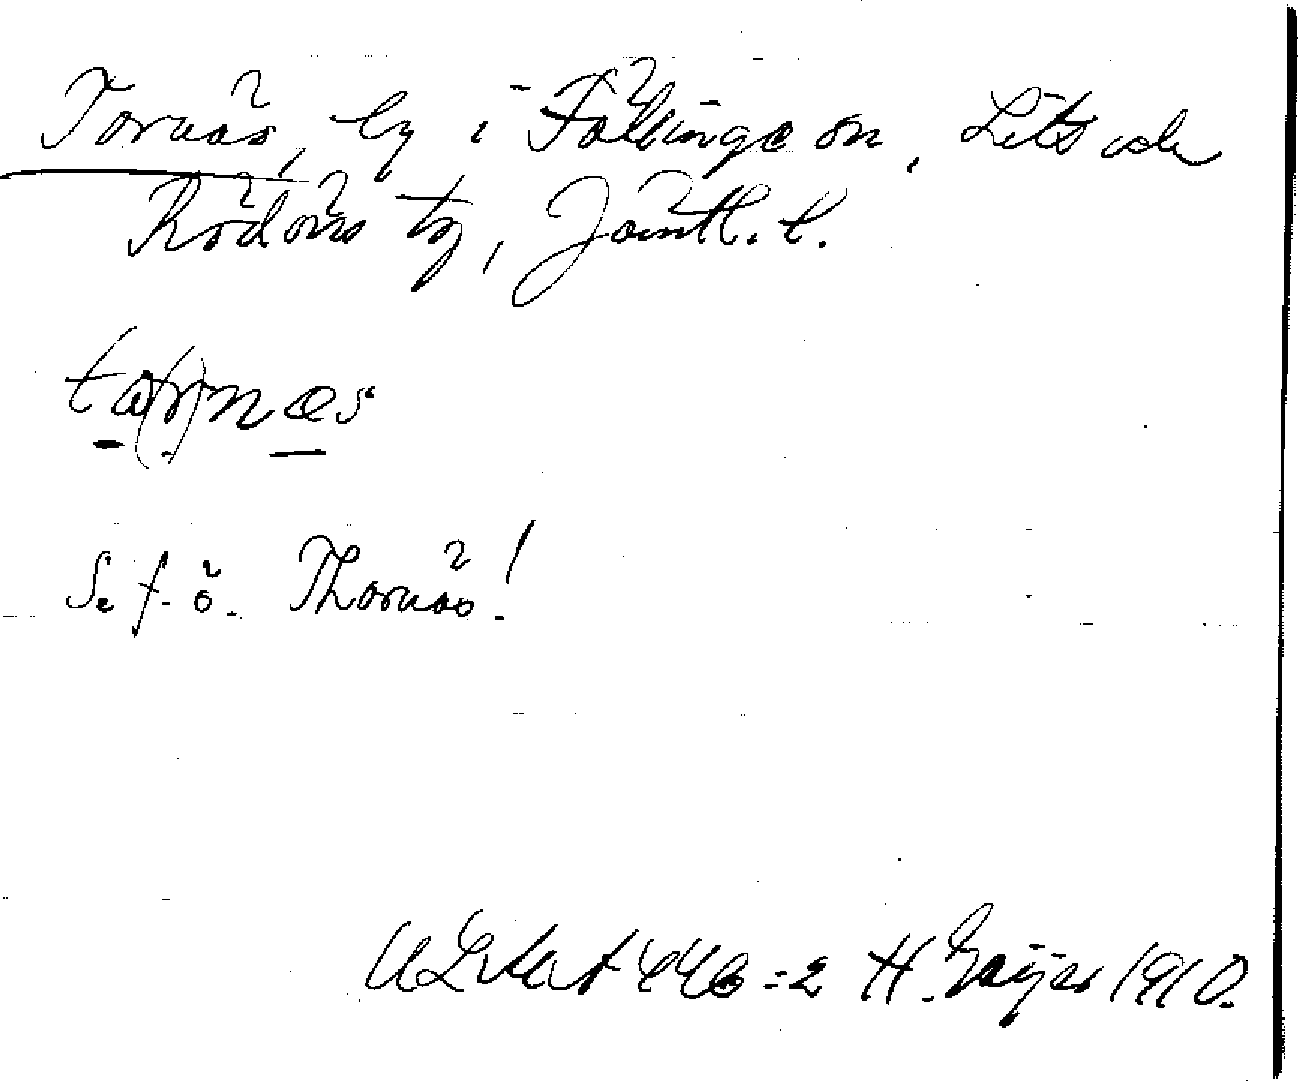 Tornäs, by i Föllinge sn, Lits och
Rödöns tg, Jämtl. l.
ta(r)næs
Se f. ö. Thornäs!
ULAkat 446:2 H. Geijer 1910.